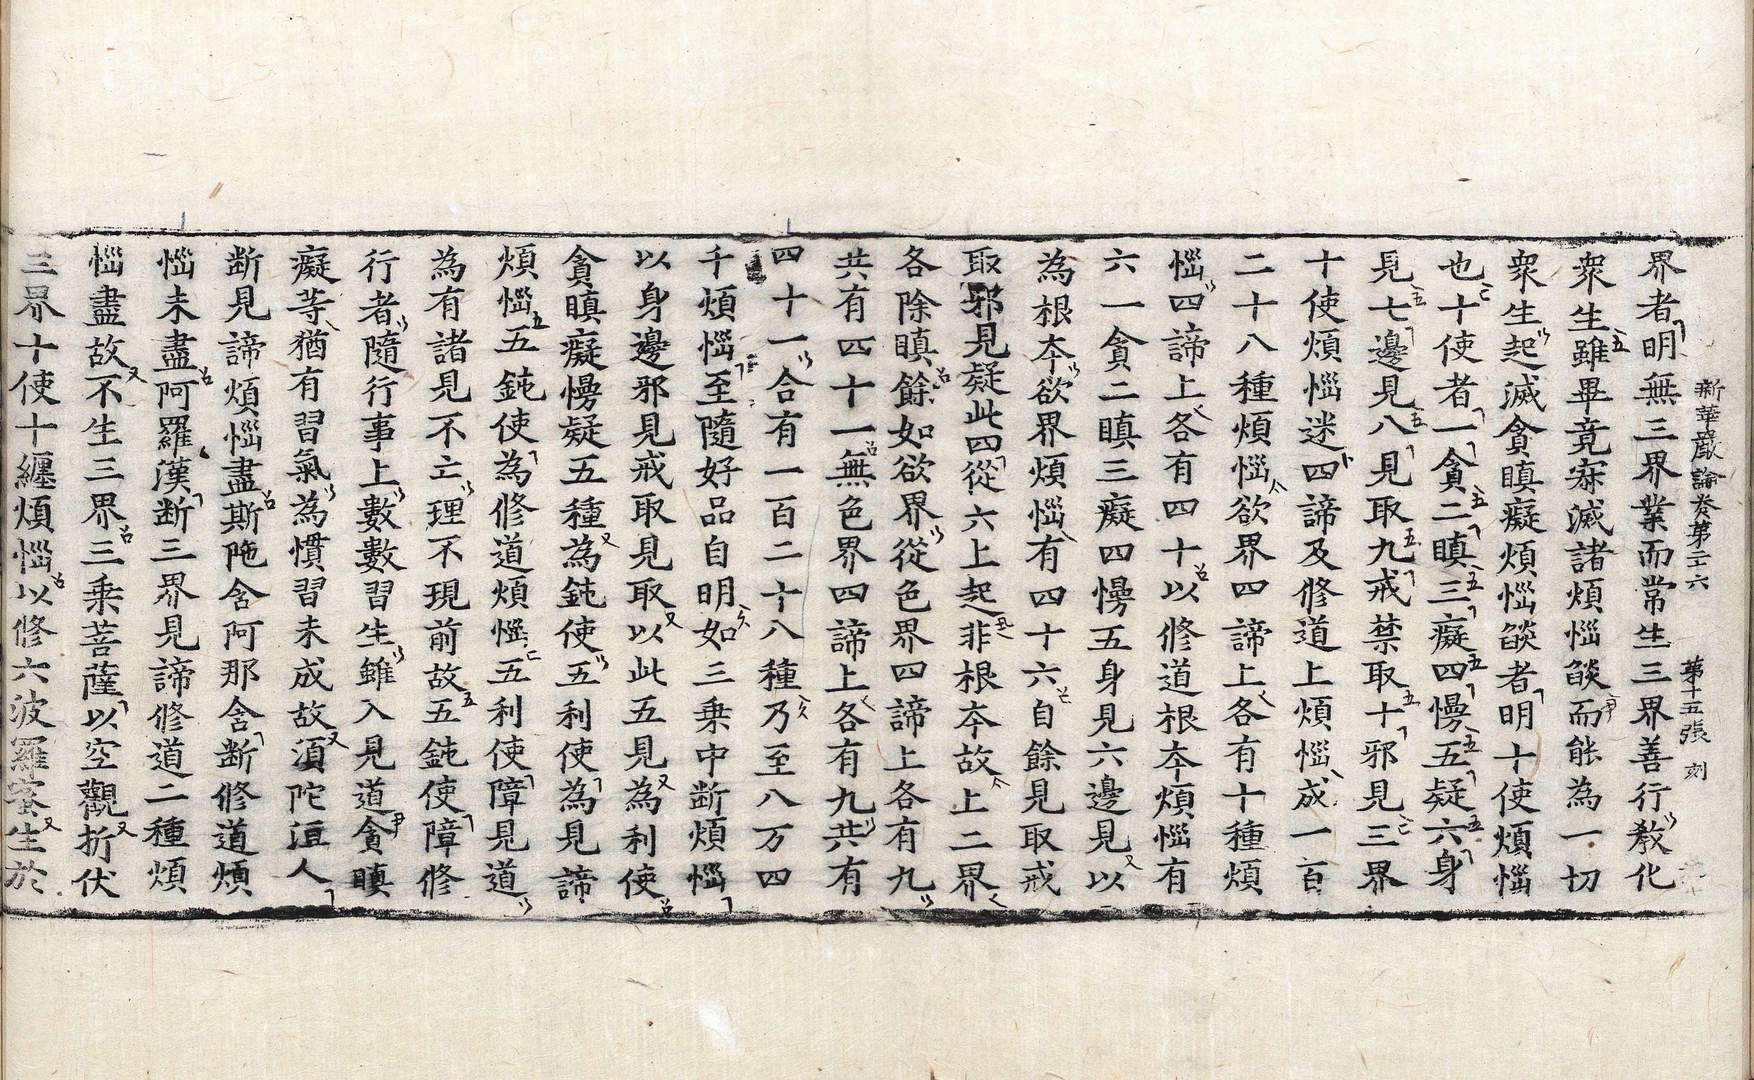 新華嚴論卷第二十六 第十五張 刻
界者明無三界業而常生三界善行教化
衆生雖畢竟寂滅諸煩惱㷔而能為一切
衆生起滅貪瞋癡煩惱㷔者明十使煩惱
也十使者一貪二瞋三癡四慢五疑六身
見七邊見八見取九戒禁取十邪見三界
十使煩惱迷四諦及修道上煩惱成一百
二十八種煩惱欲界四諦上各有十種煩
惱四諦上各有四十以修道根本煩惱有
六一貪二瞋三癡四慢五身見六邊見以
為根本欲界煩惱有四十六自餘見取戒
取邪見疑此四從六上起非根本故上二界
各除瞋餘如欲界從色界四諦上各有九
共有四十一無色界四諦上各有九共有
四十一合有一百二十八種乃至八万四
千煩惱至隨好品自明如三乗中断煩惱
以身邊邪見戒取見取以此五見為利使
貪瞋癡慢疑五種為鈍使五利使為見諦
煩惱五鈍使為修道煩惱五利使障見道
為有諸見不立理不現前故五鈍使障修
行者隨行事上數數習生雖入見道貪瞋
癡等猶有習氣為慣習未成故湏陀洹人
断見諦煩惱盡斯陁含阿那含断修道煩
惱未盡阿羅漢断三界見諦修道二種煩
惱盡故不生三界三乗菩薩以空觀折伏
三界十使十纏煩惱以修六波羅蜜生於